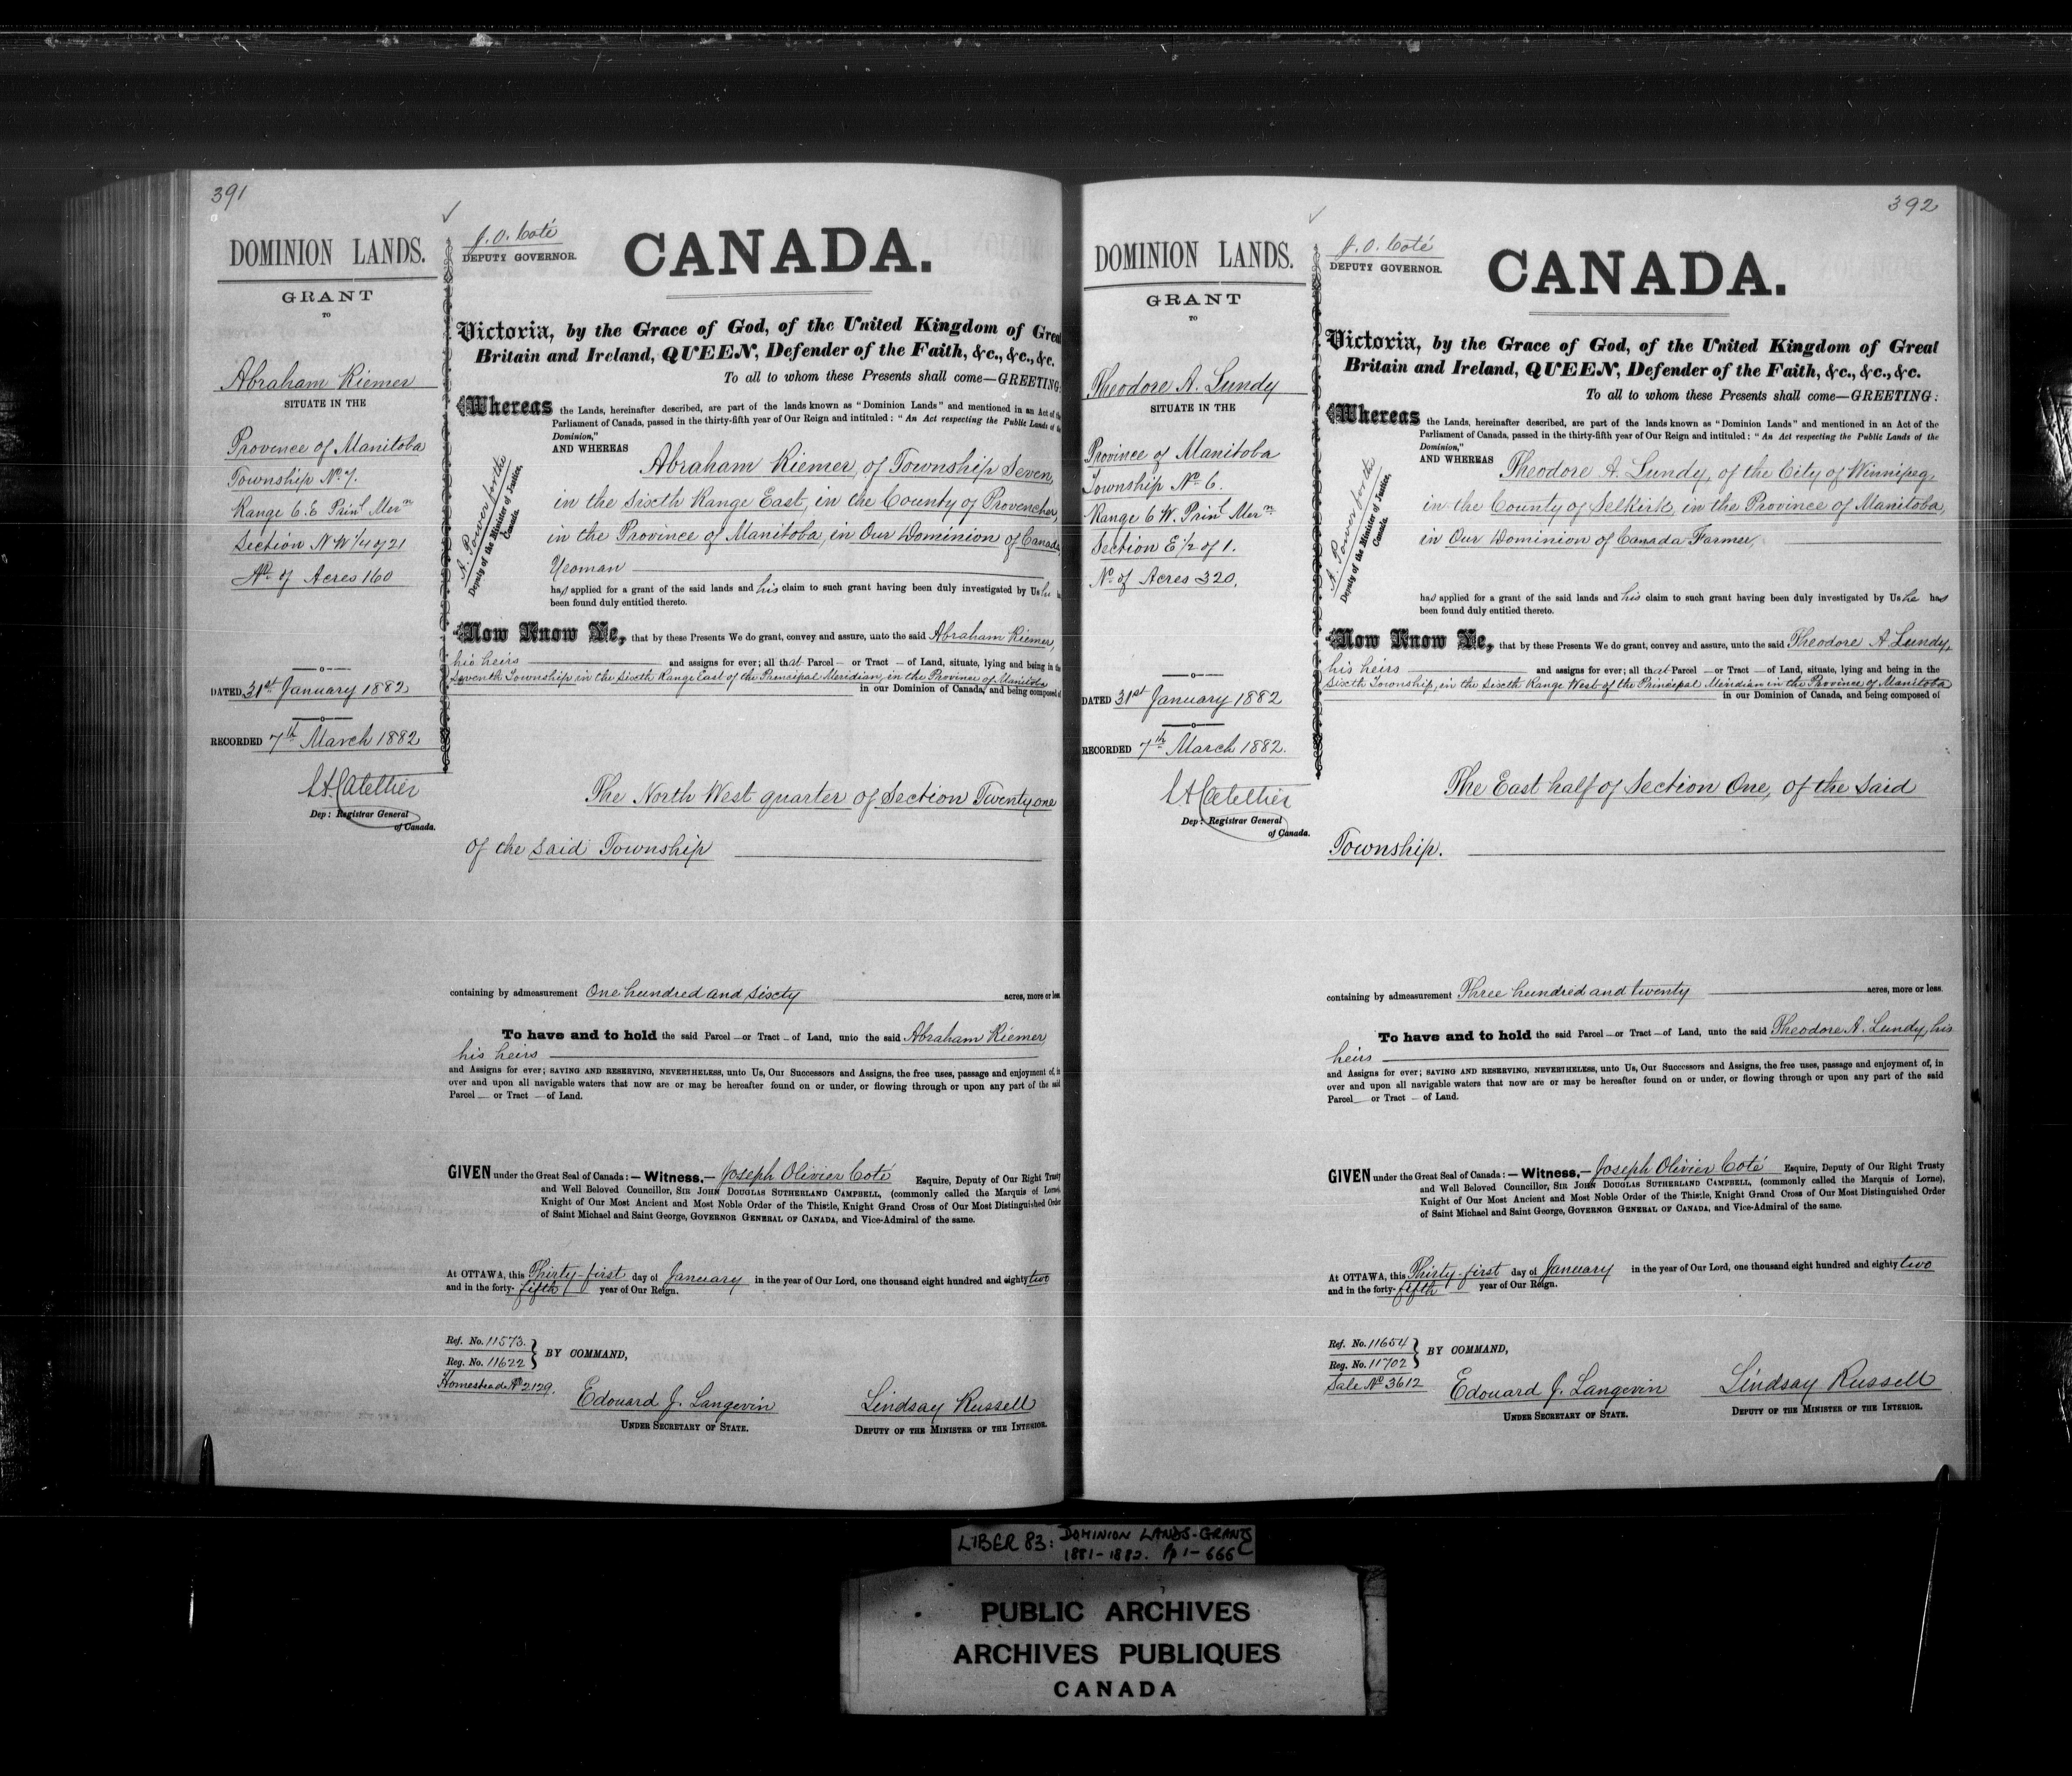 391
DOMINION LANDS.
GRANT
TO
Abraham Riemer
SITUATE IN THE
Province of Manitoba
Township No. 7.
Range 6. E Prinl Mern
Section N W 1/4 of 21
No. of Acres 160
DATED 31st January 1882
RECORDED 7th March 1882
Dep: Registrar General
of Canada.
J. O. Coté
DEPUTY GOVERNOR.
CANADA.
Victoria, by the Grace of God, of the United Kingdom of Great
Britain and Ireland, QUEEN, Defender of the Faith, &c., &c., &c.
To all to whom these Presents shall come—GREETING:
A. Power for the
Deputy of the Minister of Justice,
Canada.
Whereas the Lands, hereinafter described, are part of the lands known as "Dominion Lands" and mentioned in an Act of the
Parliament of Canada, passed in the thirty-fifth year of Our Reign and intituled: "An Act respecting the Public Lands of the
Dominion,"
AND WHEREAS
Abraham Riemer, of Township Seven,
in the Sixth Range East, in the County of Provencher,
in the Province of Manitoba, in Our Dominion of Canada
Yeoman
has applied for a grant of the said lands and his claim to such grant having been duly investigated by Us he
been found duly entitled thereto.
Now Know Ye, that by these Presents We do grant, convey and assure, unto the said Abraham Riemer,
his heirs and assigns for ever; all that Parcel — or Tract — of Land, situate, lying and being in the
Seventh Township, in the Sixth Range East of the Principal Meridian, in the Province of Manitoba
in our Dominion of Canada, and being composed of
The North West quarter of Section Twenty one
of the said Township
containing by admeasurement One hundred and sixty acres, more or less.
To have and to hold the said Parcel — or Tract — of Land, unto the said Abraham Riemer
his heirs
and Assigns for ever; SAVING AND RESERVING, NEVERTHELESS, unto Us, Our Successors and Assigns, the free uses, passage and enjoyment of, in
over and upon all navigable waters that now are or may be hereafter found on or under, or flowing through or upon any part of the said
Parcel — or Tract — of Land.
GIVEN under the Great Seal of Canada:—Witness,— Joseph Olivier Coté Esquire, Deputy of Our Right Trusty
and Well Beloved Councillor, SIR JOHN DOUGLAS SUTHERLAND CAMPBELL, (commonly called the Marquis of Lorne),
Knight of Our Most Ancient and Most Noble Order of the Thistle, Knight Grand Cross of Our Most Distinguished Order
of Saint Michael and Saint George, GOVERNOR GENERAL OF CANADA, and Vice-Admiral of the same.
At OTTAWA, this Thirty-first day of January in the year of Our Lord, one thousand eight hundred and eighty two
and in the forty-fifth year of Our Reign.
Ref. No. 11573.
Reg. No. 11622
Homestead No 2129.
BY COMMAND,
Edouard J. Langevin
UNDER SECRETARY OF STATE.
Lindsay Russell
DEPUTY OF THE MINISTER OF THE INTERIOR.
392
DOMINION LANDS.
GRANT
TO
Theodore A. Lundy
SITUATE IN THE
Province of Manitoba
Township No. 6.
Range 6 W. Prinl Mern
Section E 1/2 of 1.
No. of Acres 320.
DATED 31st January 1882
RECORDED 7th March 1882.
Dep: Registrar General
of Canada.
J. O. Coté
DEPUTY GOVERNOR.
CANADA.
Victoria, by the Grace of God, of the United Kingdom of Great
Britain and Ireland, QUEEN, Defender of the Faith, &c., &c., &c.
To all to whom these Presents shall come—GREETING:
A. Power for the
Deputy of the Minister of Justice,
Canada.
Whereas the Lands, hereinafter described, are part of the lands known as "Dominion Lands" and mentioned in an Act of the
Parliament of Canada, passed in the thirty-fifth year of Our Reign and intituled: "An Act respecting the Public Lands of the
Dominion,"
AND WHEREAS Theodore A. Lundy, of the City of Winnipeg,
in the County of Selkirk, in the Province of Manitoba,
in Our Dominion of Canada Farmer,
has applied for a grant of the said lands and his claim to such grant having been duly investigated by Us he has
been found duly entitled thereto.
Now Know Ye, that by these Presents We do grant, convey and assure, unto the said Theodore A Lundy,
his heirs and assigns for ever; all that Parcel — or Tract — of Land, situate, lying and being in the
Sixth Township, in the Sixth Range West of the Principal Meridian in the Province of Manitoba
in our Dominion of Canada, and being composed of
The East half of Section One, of the said
Township.
containing by admeasurement Three hundred and twenty acres, more or less.
To have and to hold the said Parcel — or Tract — of Land, unto the said Theodore A. Lundy, his
heirs
and Assigns for ever; SAVING AND RESERVING, NEVERTHELESS, unto Us, Our Successors and Assigns, the free uses, passage and enjoyment of, in
over and upon all navigable waters that now are or may be hereafter found on or under, or flowing through or upon any part of the said
Parcel — or Tract — of Land.
GIVEN under the Great Seal of Canada:—Witness,— Joseph Olivier Coté Esquire, Deputy of Our Right Trusty
and Well Beloved Councillor, SIR JOHN DOUGLAS SUTHERLAND CAMPBELL, (commonly called the Marquis of Lorne),
Knight of Our Most Ancient and Most Noble Order of the Thistle, Knight Grand Cross of Our Most Distinguished Order
of Saint Michael and Saint George, GOVERNOR GENERAL OF CANADA, and Vice-Admiral of the same.
At OTTAWA, this Thirty-first day of January in the year of Our Lord, one thousand eight hundred and eighty two
and in the forty-fifth year of Our Reign.
Ref. No. 11654
Reg. No. 11702
Sale No 3612
BY COMMAND,
Edouard J. Langevin
UNDER SECRETARY OF STATE.
Lindsay Russell
DEPUTY OF THE MINISTER OF THE INTERIOR.
LIBER 83: DOMINION LANDS-GRANTS
1881-1882. Pp 1-666
PUBLIC ARCHIVES
ARCHIVES PUBLIQUES
CANADA